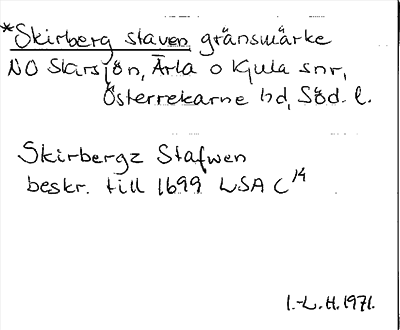 *Skirberg staven gränsmärke
NO Skirsjön, Ärla o Kjula snr,
Österrekarne hd, Söd. l.
Skirbergz Stafwen
beskr. till 1699 LSA C 14
I.-L. H. 1971.